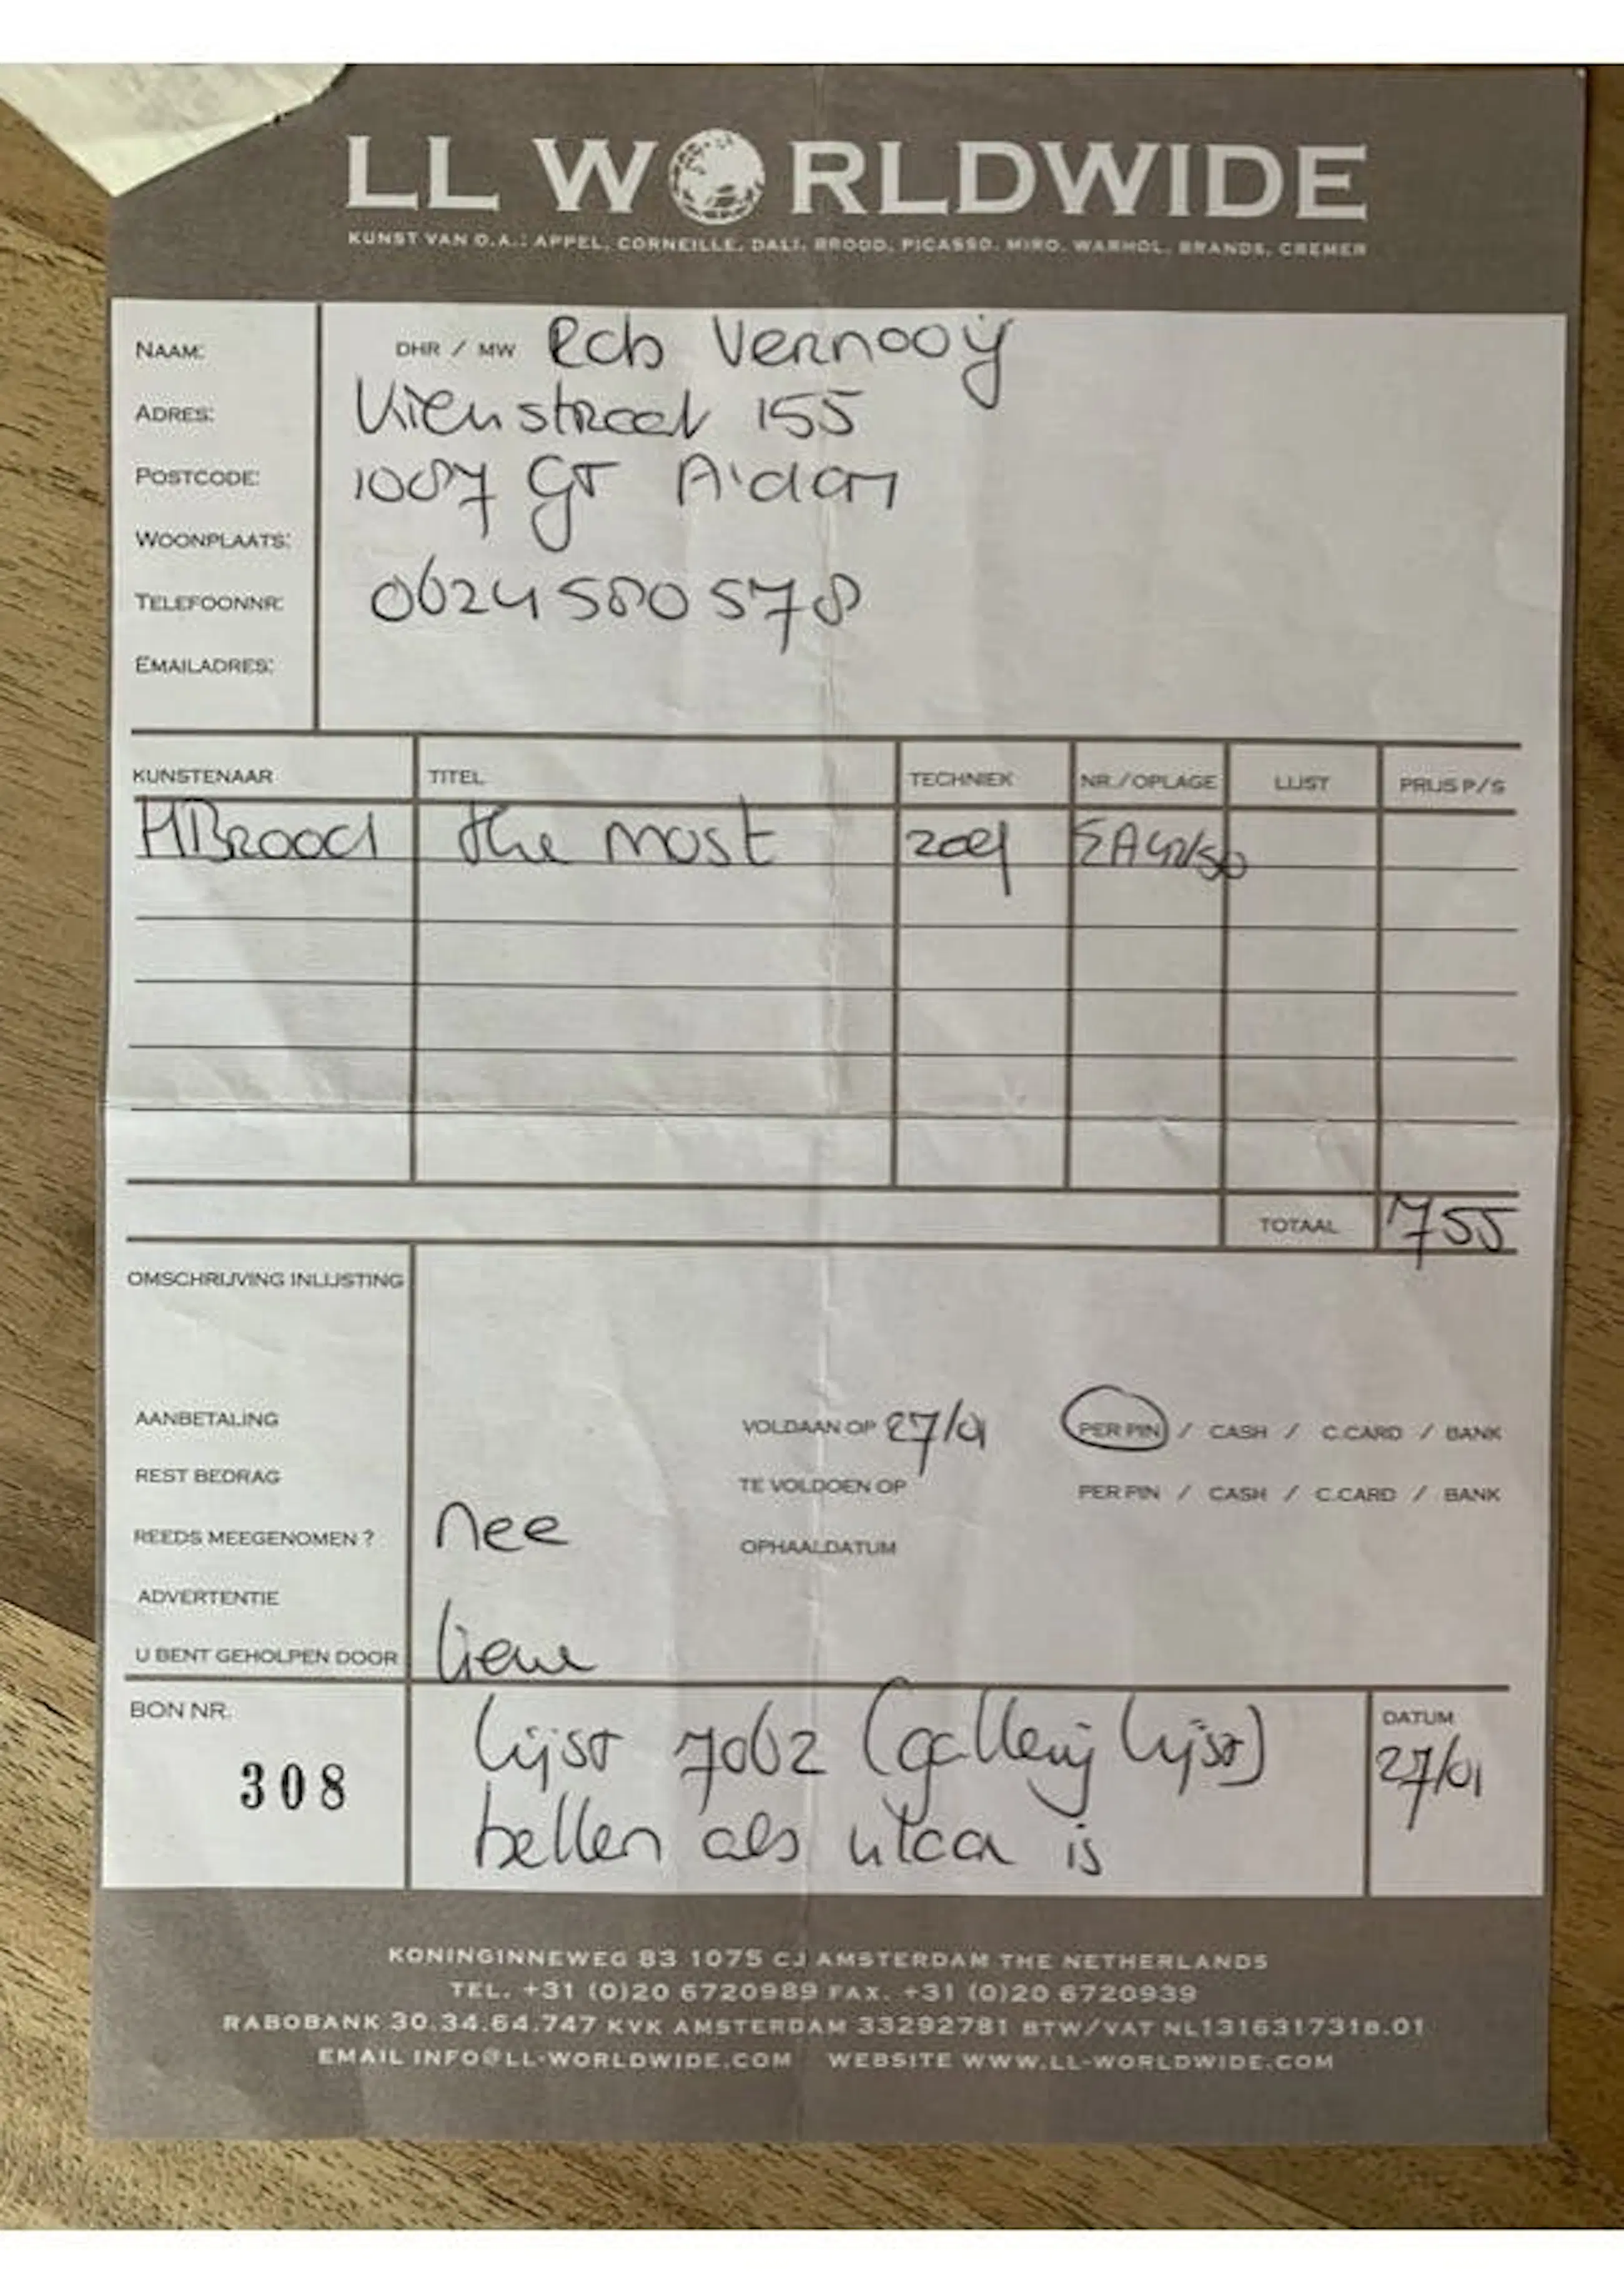 LL WORLDWIDE
KUNST VAN O.A.: APPEL, CORNEILLE, DALI, BROOD, PICASSO, MIRO, WARHOL, BRANDS, CREMER
NAAM: DHR / MW Rob Vernooÿ
ADRES: 155
POSTCODE: 1087 GT A'dam
WOONPLAATS:
TELEFOONNR: 0624580578
EMAILADRES:
KUNSTENAAR TITEL TECHNIEK NR./OPLAGE LIJST PRIJS P/S
HBrood the most zeef EA 42/50
TOTAAL 755
OMSCHRIJVING INLIJSTING
AANBETALING VOLDAAN OP 27/01 PER PIN / CASH / C.CARD / BANK
REST BEDRAG TE VOLDOEN OP PER PIN / CASH / C.CARD / BANK
REEDS MEEGENOMEN ? nee OPHAALDATUM
ADVERTENTIE
U BENT GEHOLPEN DOOR
BON NR. lijst 7062 (gallerij lijst) DATUM
308 27/01
bellen als klaar is
KONINGINNEWEG 83 1075 CJ AMSTERDAM THE NETHERLANDS
TEL. +31 (0)20 6720989 FAX. +31 (0)20 6720939
RABOBANK 30.34.64.747 KVK AMSTERDAM 33292781 BTW/VAT NL131631731B.01
EMAIL INFO@LL-WORLDWIDE.COM WEBSITE WWW.LL-WORLDWIDE.COM